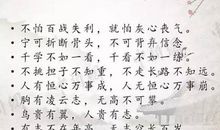 • 不怕百战失利,就怕灰心丧气。
• 宁可折断骨头,不可背弃信念。
• 千学不如一看,千看不如一练。
• 不挑担子不知重,不走长路不知远。
• 人有恒心万事成,人无恒心万事崩。
• 胸有凌云志,无高不可攀。
• 鸟贵有翼,人贵有志。